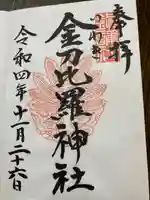 奉拝
金刀比羅神社
令和四年十一月二十六日